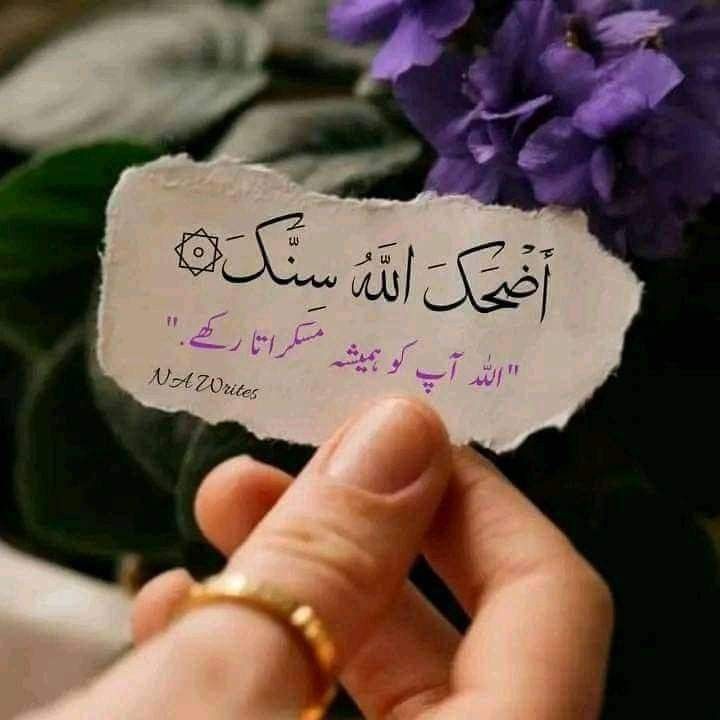 أَضْحَكَ اللَّهُ سِنَّكَ ۞
"اللہ آپ کو ہمیشہ مسکراتا رکھے۔"
NA Writes